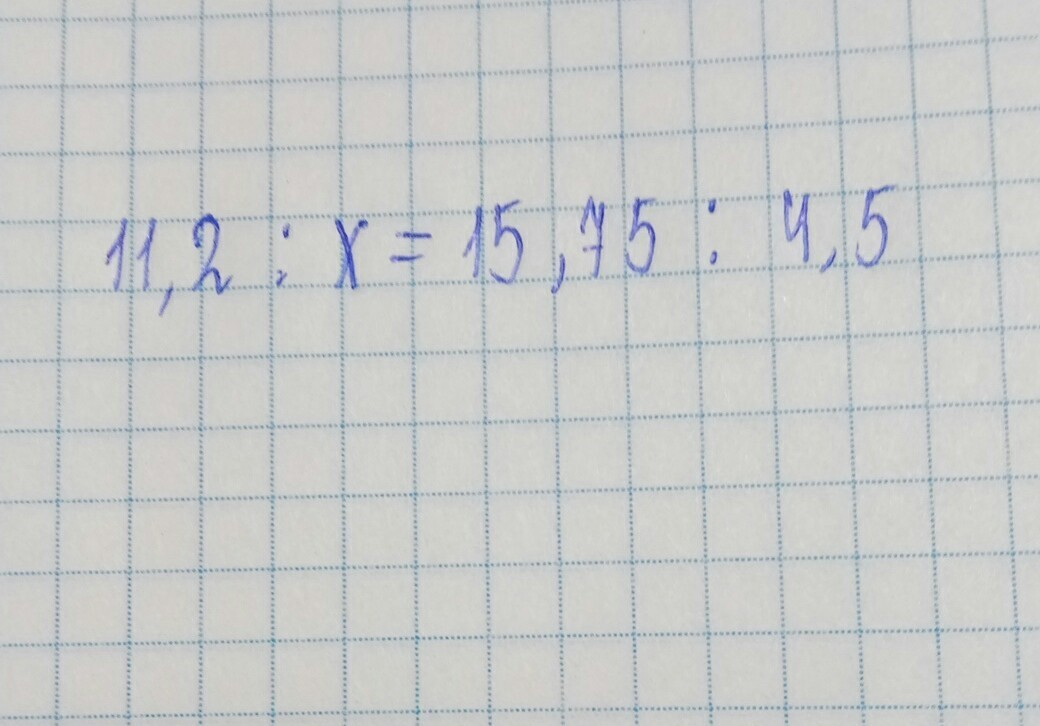 11,2 : x = 15,75 : 4,5